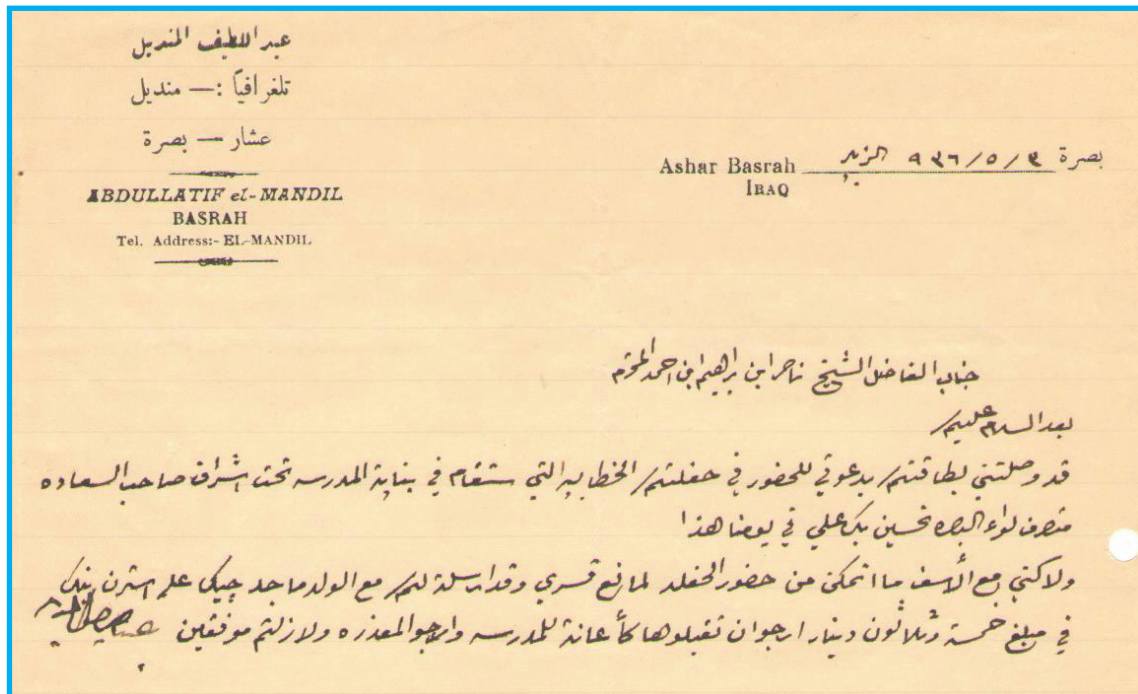 عبد اللطيف المنديل
تلغرافياً :— منديل
عشار — بصرة
ABDULLATIF el-MANDIL
BASRAH
Tel. Address:- EL-MANDIL
بصرة ٩٣٦/٥/٣ الزبير
Ashar Basrah
IRAQ
جناب الفاضل الشيخ ناصر ابن ابراهيم ابن احمد المحترم
بعد السلام عليكم
قد وصلتني بطاقتكم بدعوتي للحضور في حفلتكم الخطابيه التي ستقام في بناية المدرسه تحت اشراف صاحب السعاده
متصرف لواء البصره تحسين بك علي في يومنا هذا
ولاكني مع الأسف ما اتمكن من حضور الحفله لمانع قسري وقد ارسلة لكم مع الولد ماجد چيك على استرن بنك
في مبلغ خمسة وثلاثون دينار ارجوان تقبلوها كأعانة للمدرسه وارجو المعذره ولازلتم موفقين